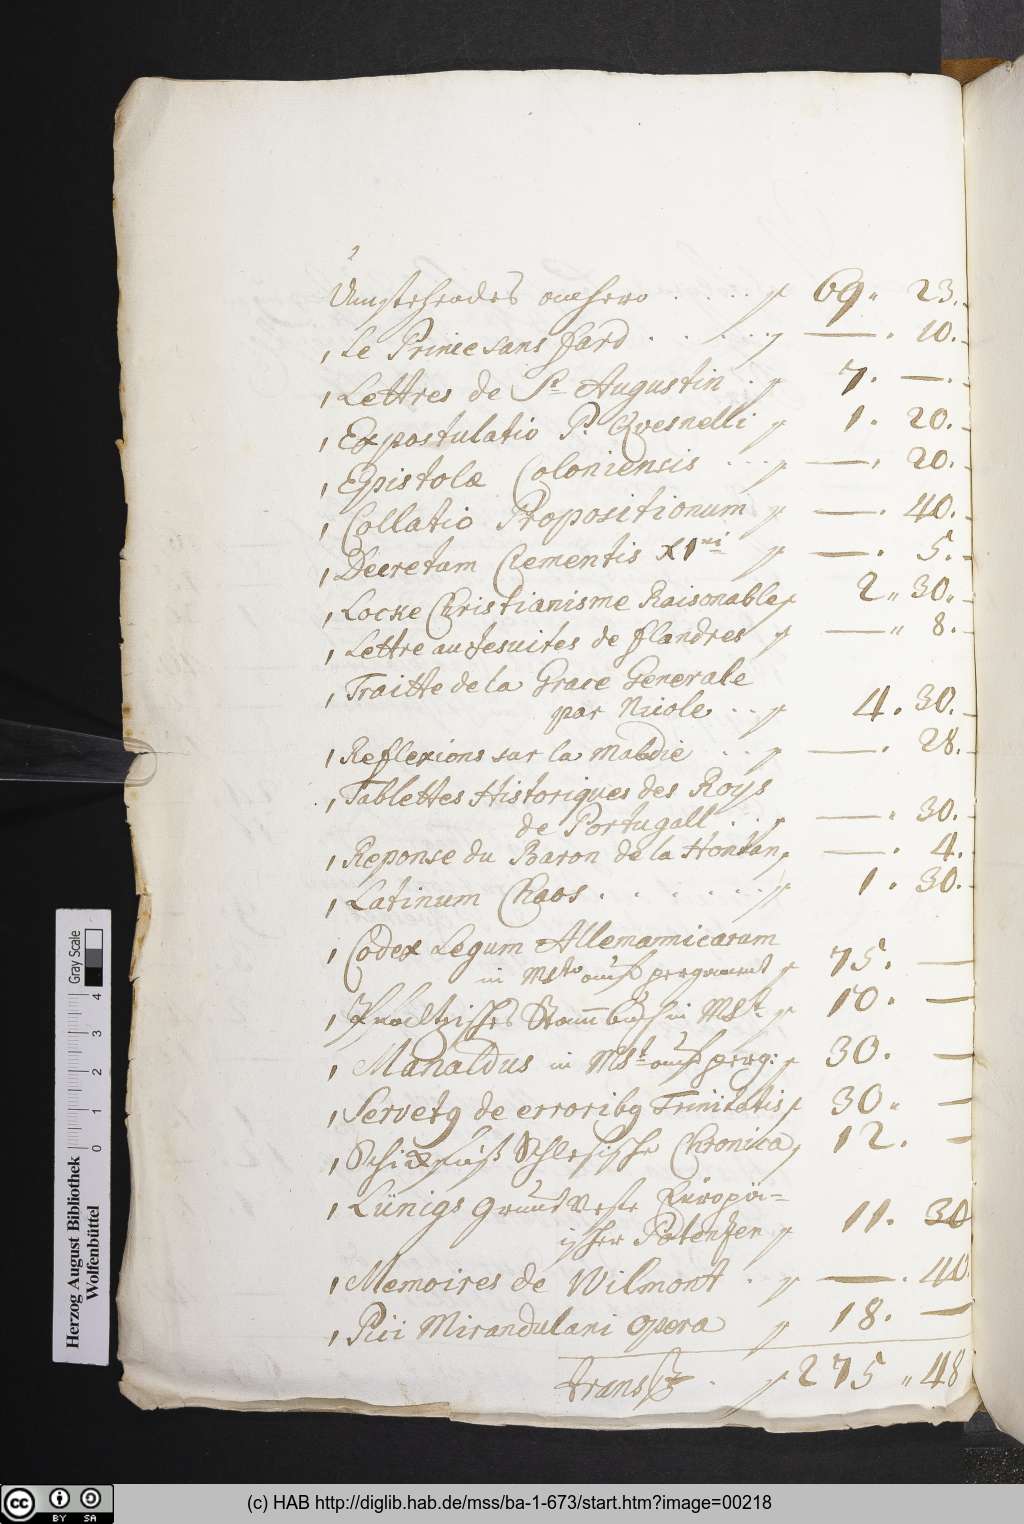 Umstehendes anhero . . . . f 69„ 23.
1 Le Prince sans fard . . . . . f — . 10.
1 Lettres de St Augustin . f 7. —.
1 Expostulatio P. Qvesnelli f 1. 20.
1 Epistolæ Coloniensis . . . f — . 20.
1 Collatio Propositionum f — . 40.
1 Decretam Clementis XI mi f — . 5.
1 Locke Christianisme Raisonable f 2„ 30„
1 Lettre aux Jesuites de flandres f — „ 8.
1 Traitte de la Grace Generale
par Nicole . . f 4. 30.
1 Reflexions sur la maladie . . f — . 28.
1 Tablettes Historiques des Roys
de Portugall . . f — „ 30.
1 Reponse du Baron de la Hontan f — . 4.
1 Latinum Chaos . . . . . . . f 1. 30.
1 Codex Legum Allemannicarum
in Msto auf pergament f 75. —
1 Pfaeltzisches Stammbuch in Mst. f 10. —
1 Manaldus in Mst auf perg: f 30. —
1 Servetg de erroribg Trinitatis f 30„ —
1 Schickfuß Schlesische Chronica f 12. —
1 Lünigs Grundveste Europäi=
ischer Potenzen f 11. 30
1 Memoires de Wilmont . f — . 40.
1 Pii Mirandulani opera f 18. —
transp . f 275 „ 48
Gray Scale
0 1 2 3 4
Herzog August Bibliothek
Wolfenbüttel
cc BY SA
(c) HAB http://diglib.hab.de/mss/ba-1-673/start.htm?image=00218